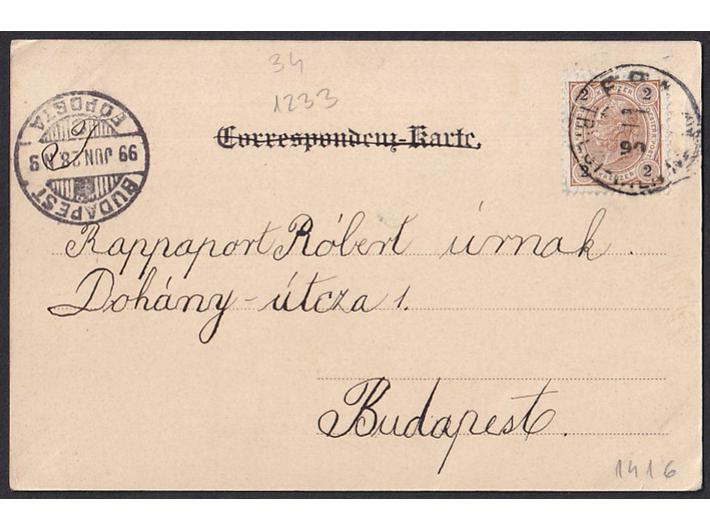 34
1233
Correspondenz-Karte.
BUDAPEST
99 JUN. 28 N9
FŐPOSTA
2 KREUZER 2
2 2
Rappaport Róbert úrnak.
Dohány-útcza 1.
Budapest.
1416